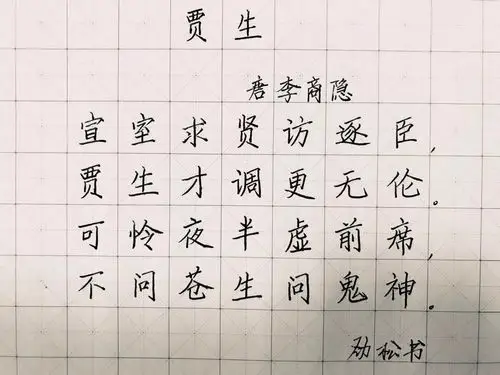 贾生
唐李商隐
宣室求贤访逐臣,
贾生才调更无伦。
可怜夜半虚前席,
不问苍生问鬼神。
劲松书